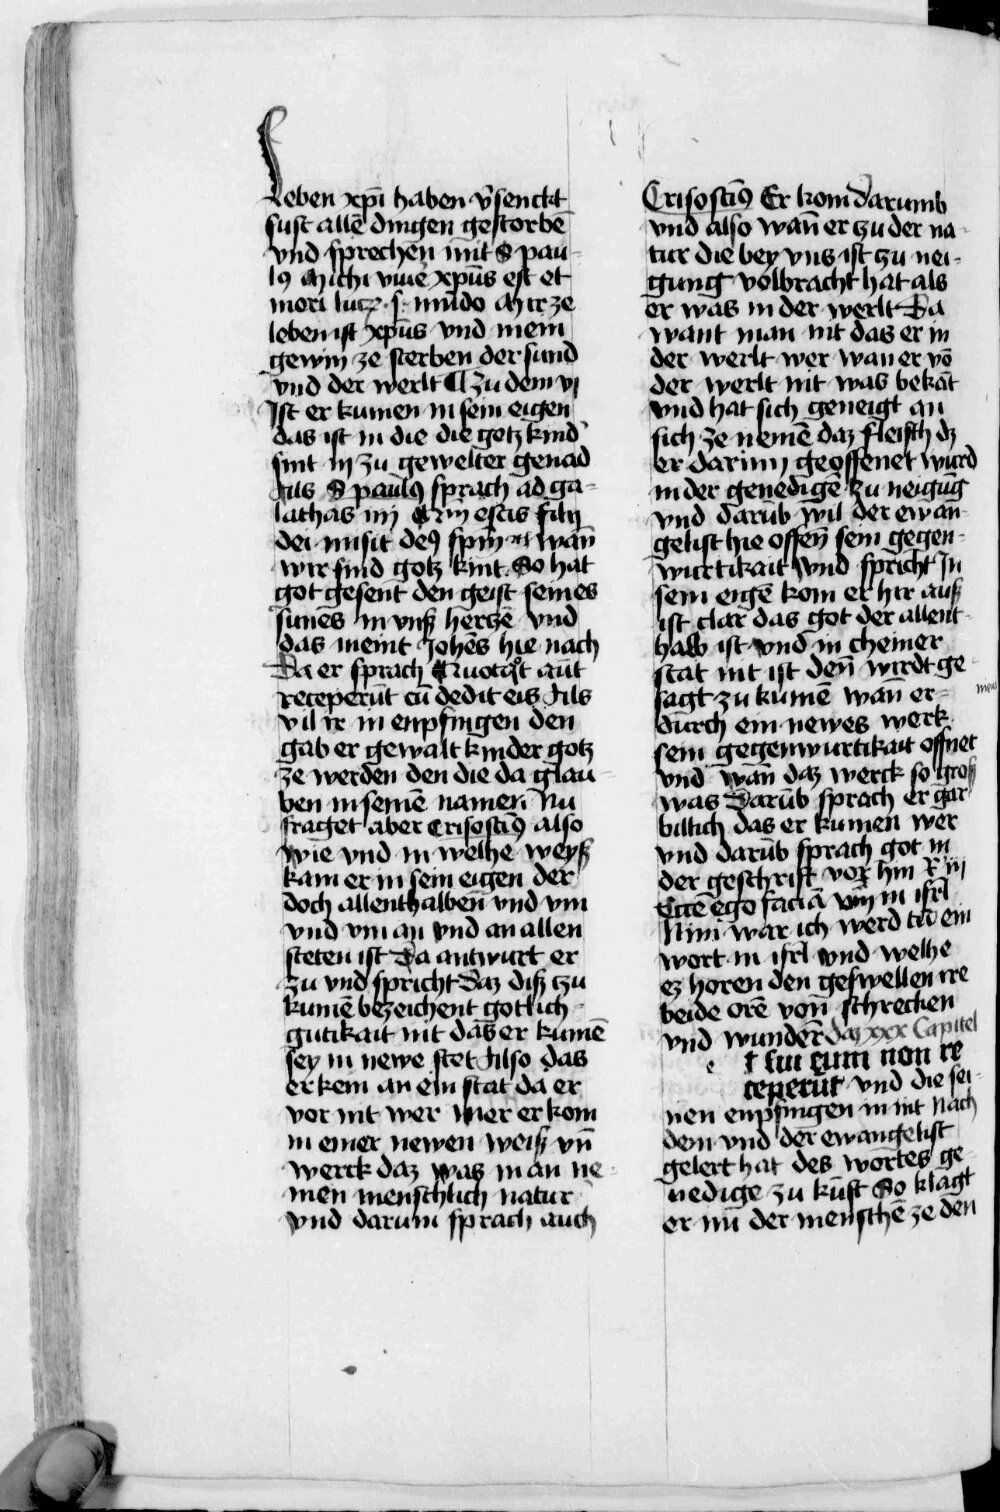 Leben xp̄i haben v̄senckt
sust allē dingen gestorbē
vnd sprechen mit S pau-
lꝯ Michi viuē xpūs est et
mori lucꝝ .s. mūdo Mir ze
leben ist xpūs vnd mein
gewin ze sterben der sund
vnd der werlt ¶ Zu dem vj
Ist er kumen in sein eigen
das ist in die die gotz kind
sint in zu gewelter genad
Als S paulꝯ sprach ad ga-
lathas iiij Qm̄ estis filij
dei misit deꝯ sp̄m wān
wir sind gotz kint. So hat
got gesent den geist seines
sunes in vnß hertzē vnd
das meint Johēs hie nach
Da er sprach Quotqͦt aūt
receperūt eū dedit eis Als
vil ir in enpfingen den
gab er gewalt kinder gotz
ze werden den die da glau-
ben in seinē namen Nu
fraget aber Crisostīꝯ also
wie vnd in welhe weyß
kam er in sein eigen der
doch allenthalbēn vnd vm
vnd vm an vnd an allen
steten ist Da antwurt er
zu vnd spricht daz diß zu
kumē bezeichent gotlich
gutikait nit das er kumē
sey in newe stet Also das
er kem an ein stat da er
vor nit wer Mer er kom
in einer newen weiß vn̄
werck daz was in an ne-
men menschlich natur
vnd darum sprach auch
Crisostīꝯ Er kom darumb
vnd also wān er zu der na-
tur die bey vns ist zu nei-
gung volbracht hat als
er was in der werlt Da
want man nit das er in
der werlt wer wan er vō
der werlt nit was bekāt
vnd hat sich geneigt an
sich ze nemē daz fleisch dz
er darinn geoffenet wurd
in der genedigē zu neigūg
vnd darūb wil der ewan-
gelist hie offen̄ sein gegen-
wurtikait vnd spricht In
sein eigē kom er hir auß
ist clar das got der allent-
halb ist vnd in cheiner
stat nit ist den̄ wirdt ge-
sagt zu kumē wān er
durch ein newes werk
sein gegenwurtikait offnet
vnd wān daz werck so groß
was Darūb sprach er gar
billich das er kumen wer
vnd darūb sprach got in
der geschrift vor hin R iij
Ecce ego faciā v̄m in isrl
Nim war ich werd tū ein
wort in isrl vnd welhe
ez horen den geswellen ire
beide orē vōn schrecken
vnd wundēr daz xxx Capitel
e t sui eum non re
ceperūt vnd die sei-
nen enpfingen in nit Nach
dem vnd der ewangelist
gelert hat des wortes ge-
nedige zu kūft So klagt
er nū der menschē ze den